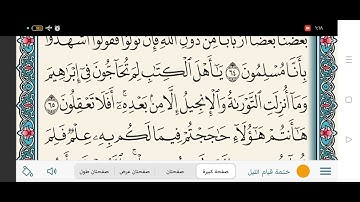 ٦:١٨
بَعْضُنَا بَعْضًا أَرْبَابًا مِّن دُونِ ٱللَّهِ فَإِن تَوَلَّوْا۟ فَقُولُوا۟ ٱشْهَدُوا۟
بِأَنَّا مُسْلِمُونَ ٦٤ يَـٰٓأَهْلَ ٱلْكِتَـٰبِ لِمَ تُحَآجُّونَ فِىٓ إِبْرَٰهِيمَ
وَمَآ أُنزِلَتِ ٱلتَّوْرَىٰةُ وَٱلْإِنجِيلُ إِلَّا مِنۢ بَعْدِهِۦٓ ۚ أَفَلَا تَعْقِلُونَ ٦٥
هَـٰٓأَنتُمْ هَـٰٓؤُلَآءِ حَـٰجَجْتُمْ فِيمَا لَكُم بِهِۦ عِلْمٌ فَلِمَ
ختمة قيام الليل
صفحة كبيرة
صفحتان
صفحتان عرض
صفحتان طول